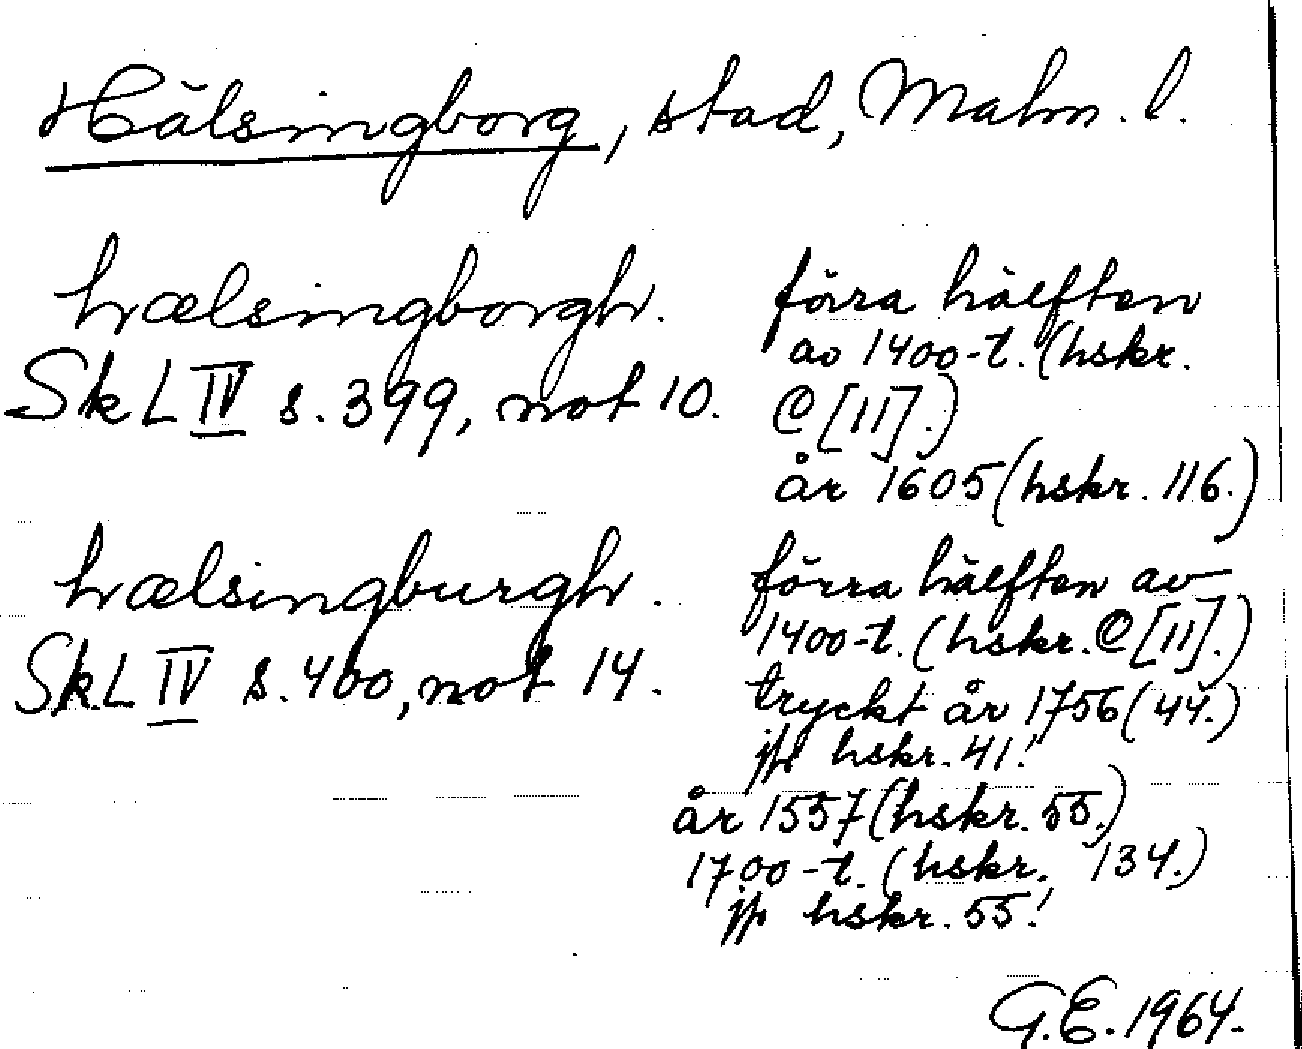 Hälsingborg, stad, Malm. l.
hælsingborgh.
SkL IV s. 399, not 10.
förra hälften
av 1400-t. (hskr.
C [II].)
år 1605 (hskr. 116.)
hælsingburgh.
SkL IV s. 400, not 14.
förra hälften av
1400-t. (hskr. C [II].)
tryckt år 1756 (44.)
jfr hskr. 41!
år 1557 (hskr. 55.)
1700-t. (hskr. 134.)
jfr hskr. 55!
G.E. 1964.